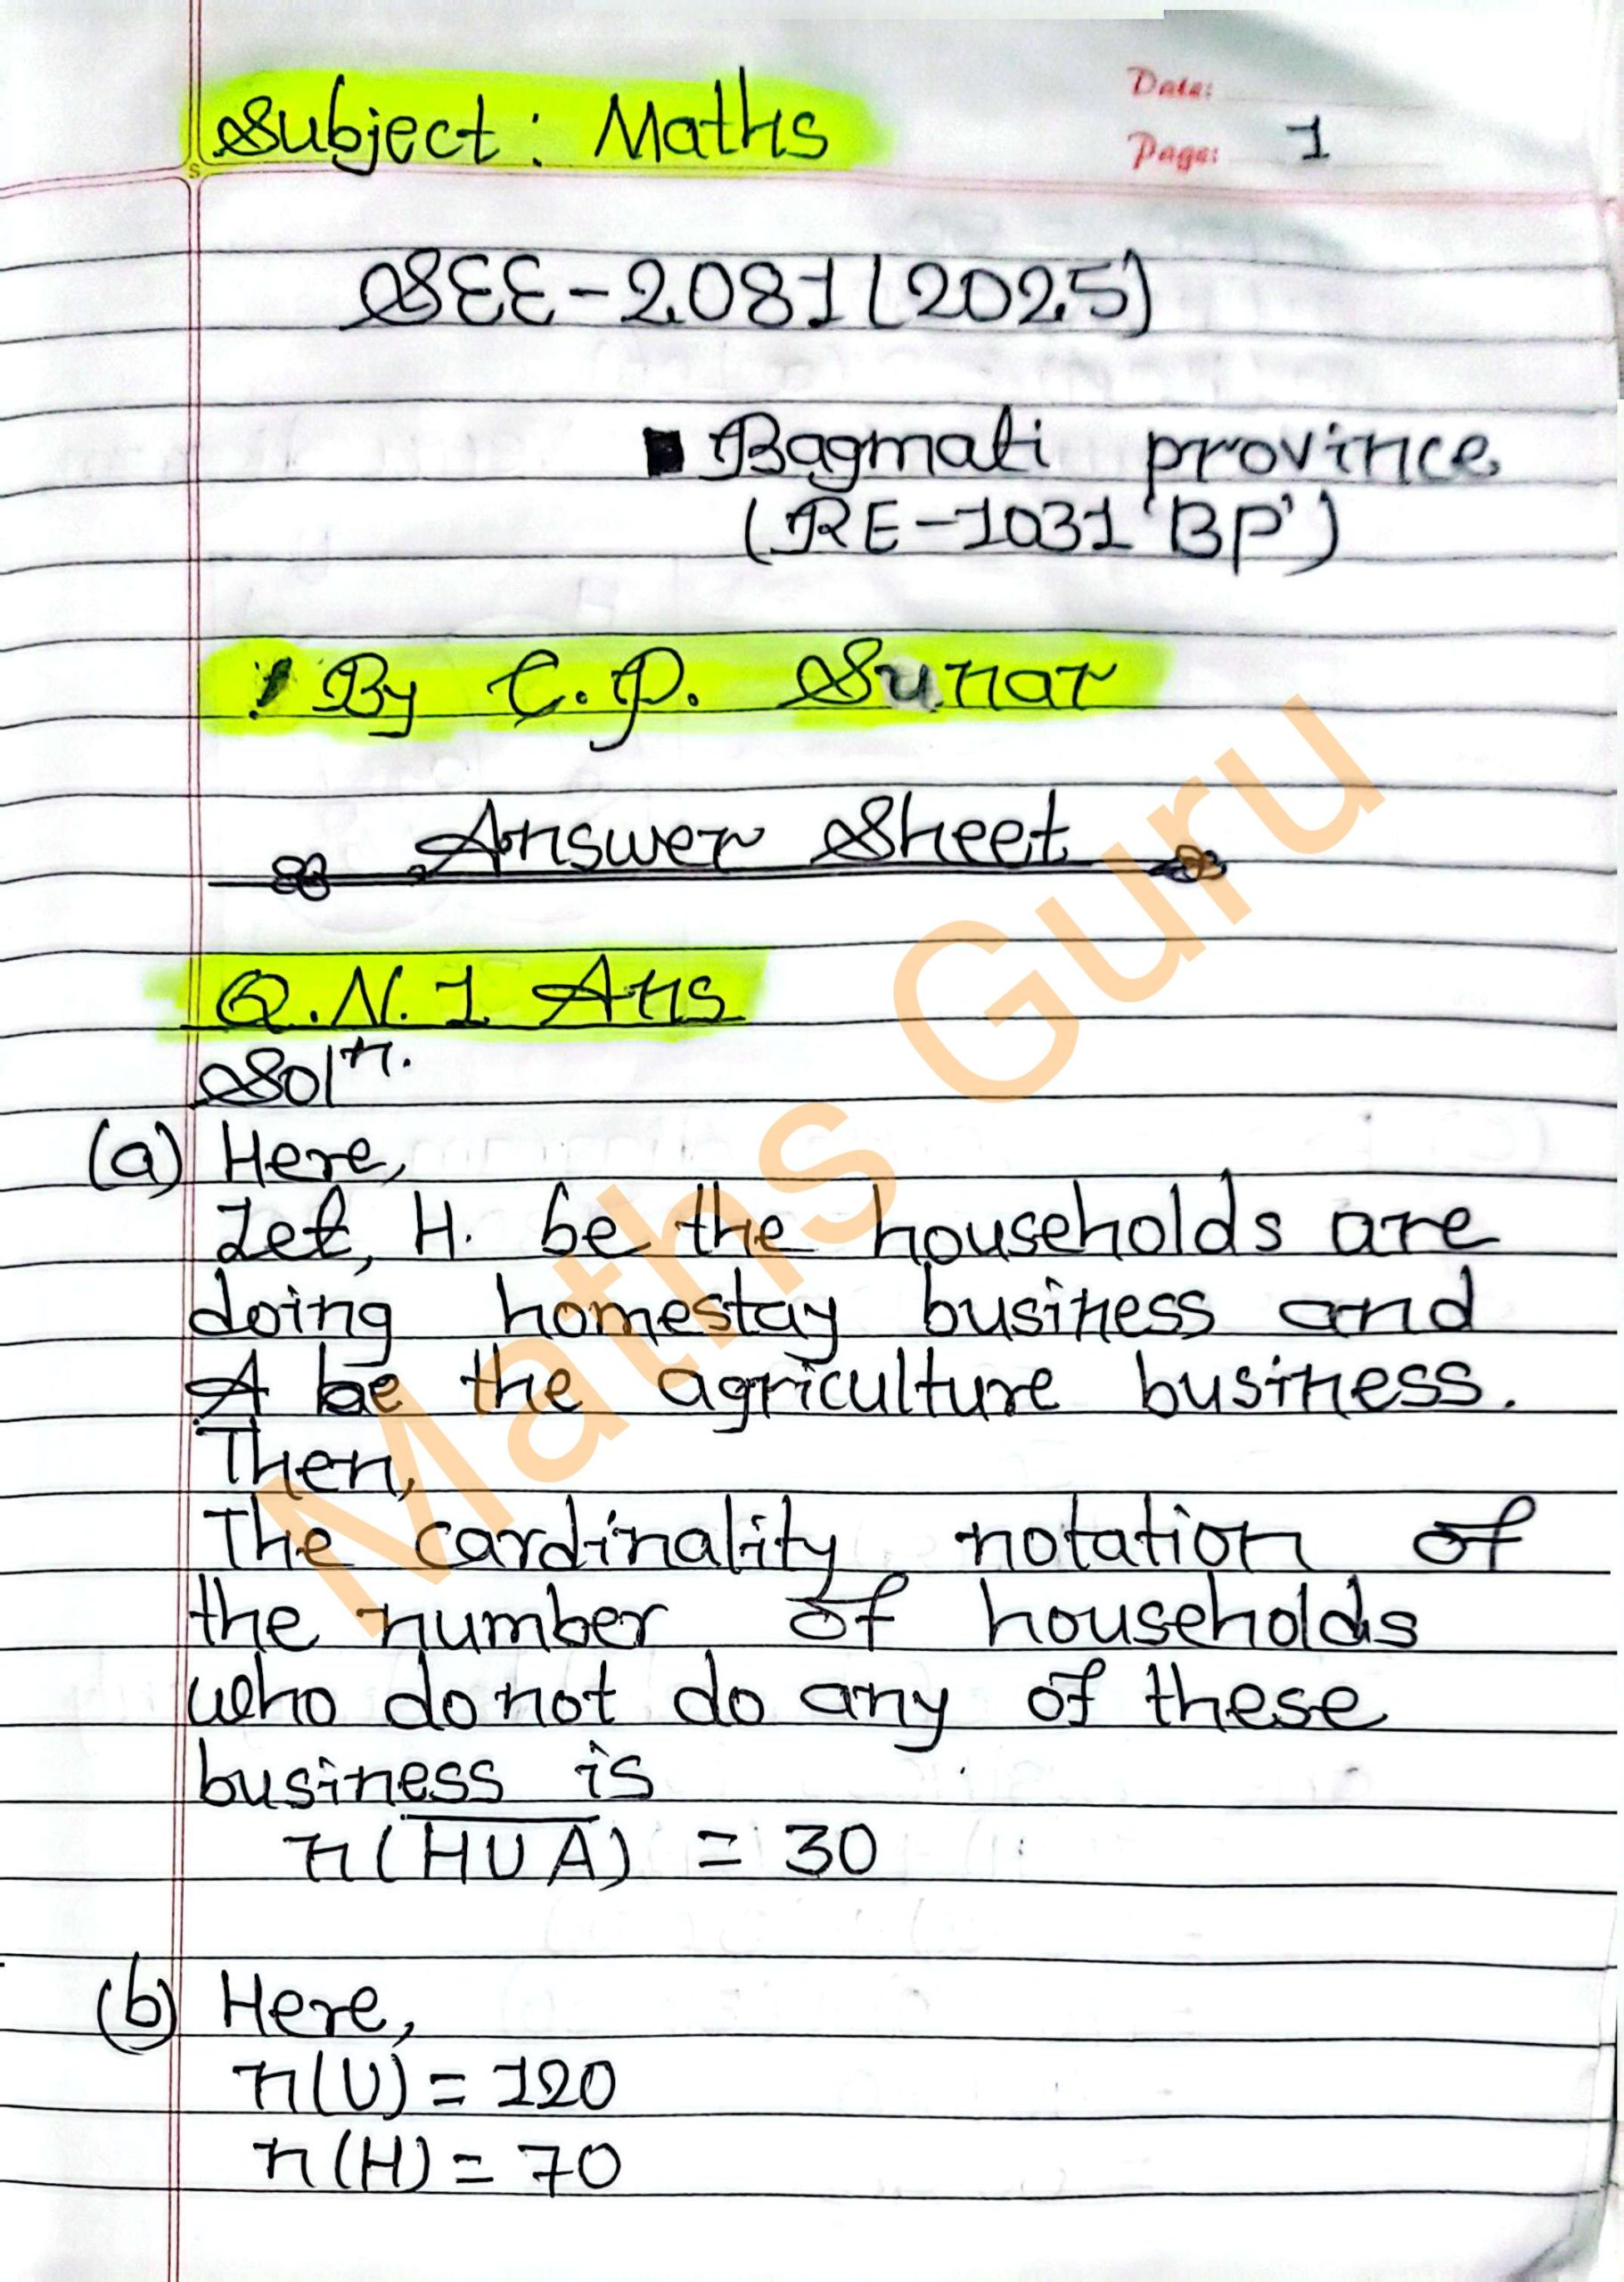 Subject: Maths
Date:
Page: 1
SEE-2081(2025)
Bagmati province
(RE-1031 'BP')
By C.P. Sunar
Answer Sheet
Q.N. 1 Ans
Solⁿ.
(a) Here,
Let, H. be the households are
doing homestay business and
A be the agriculture business.
Then,
The cardinality notation of
the number of households
who do not do any of these
business is
n(H̅ ̅U̅ ̅A̅) = 30
(b) Here,
n(U) = 120
n(H) = 70
Maths Guru